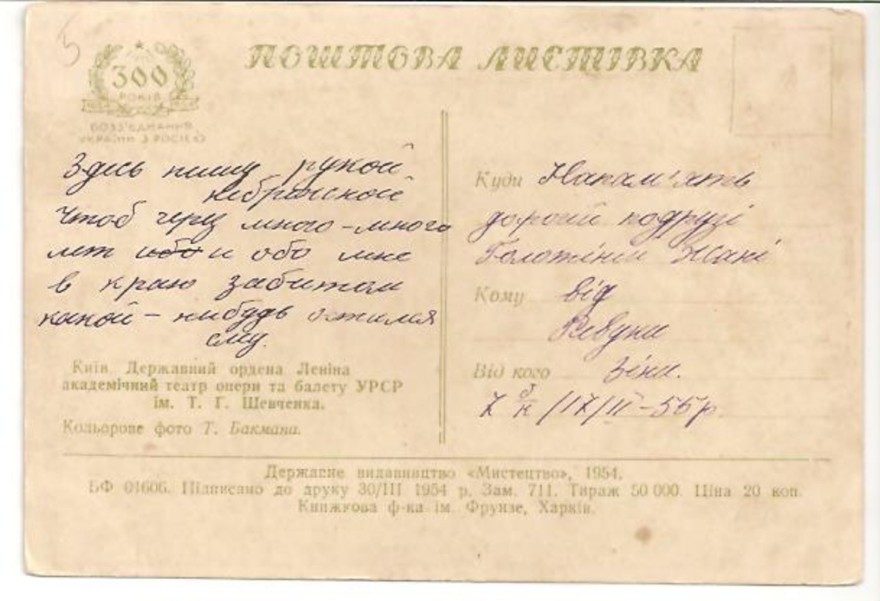 5
300
РОКІВ
ВОЗЗ'ЄДНАННЯ
УКРАЇНИ З РОСІЄЮ
ПОШТОВА ЛИСТІВКА
Здесь пишу рукой
небрежной
Чтоб через много-много
лет обо мне
в краю забытом
какой-нибудь остался
Київ. Державний ордена Леніна
академічний театр опери та балету УРСР
ім. Т. Г. Шевченка.
Кольорове фото Т. Бакмана.
Куди На пам'ять
дорогій подрузі
Жані
Кому від
Ревуки
Від кого Зіни.
17/II-55р.
Державне видавництво «Мистецтво», 1954.
БФ 01606. Підписано до друку 30/III 1954 р. Зам. 711. Тираж 50 000. Ціна 20 коп.
Книжкова ф-ка ім. Фрунзе, Харків.